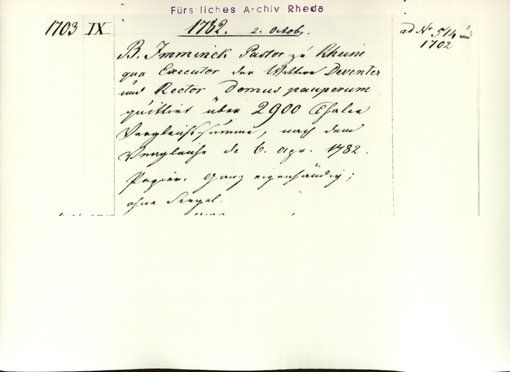 Fürstliches Archiv Rheda
1703 IX
1782. 2. Octob.
ad N. 514 und
1702
B. Imminck Pastor zu Rheine
qua Executor der Wittwe Deventer
und Rector Domus pauperum
quittirt über 2900 Thaler
Vergleichssumme, nach dem
Vergleiche de 6. Apr. 1782.
Papier. Ganz eigenhändig;
ohne Siegel.